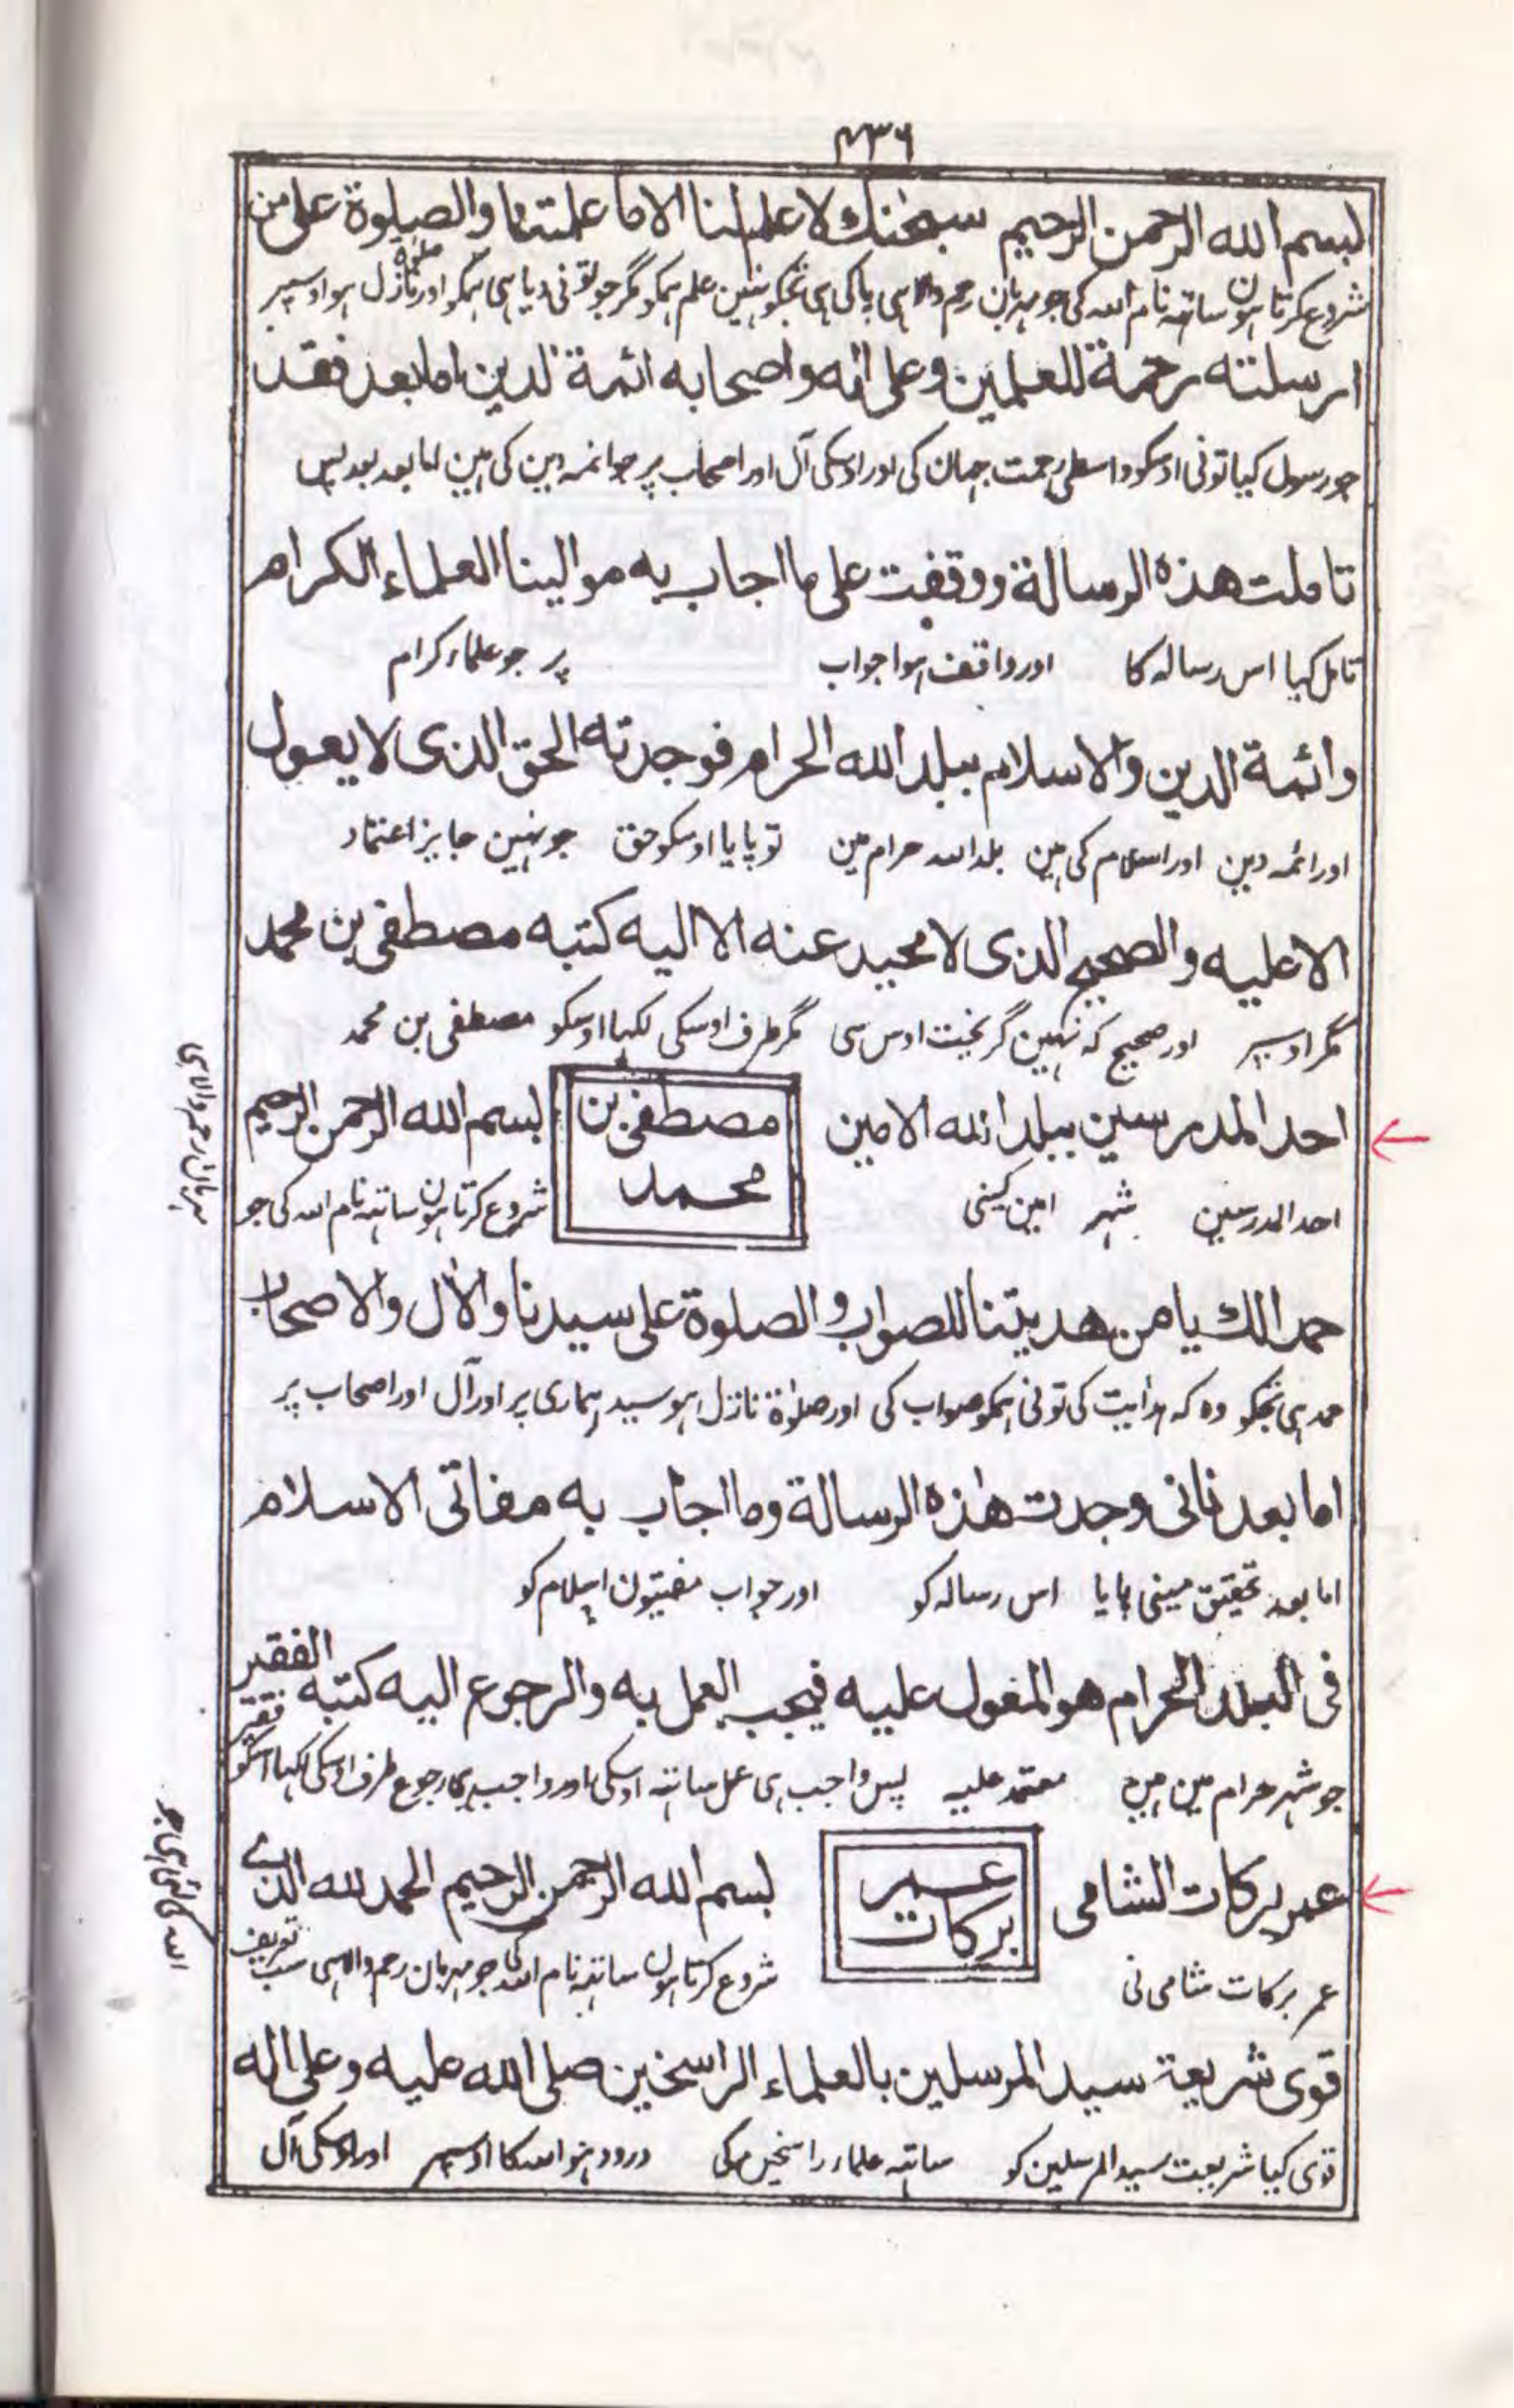 ۴۳۶
بسم الله الرحمن الرحیم سبحٰنك لا علم لنا الا ما علمتنا والصلوة علی من
شروع کرتا ہون ساتہہ نام اللہ کی جو مہربان رحم والا ہی پاکی ہی تجکو نہین علم ہمکو مگر جو تونی دیا ہی ہمکو اور صلوٰۃ نازل ہو اوسپر
ارسلته رحمة للعلمین وعلی اله واصحابه ائمة الدین اما بعد فقد
جو رسول کیا تونی اوسکو واسطی رحمت جہان کی اور اوسکی آل اور اصحاب پر جو ائمہ دین کی ہین اما بعد بعد پس
تاملت هذه الرسالة ووقفت علی ما اجاب به موالینا العلماء الکرام
تامل کیا اس رسالہ کا اور واقف ہوا جواب پر جو علماء کرام
وائمة الدین والاسلام ببلد الله الحرام فوجدته الحق الذی لا یعول
اور ائمہ دین اور اسلام کی ہین بلد اللہ حرام مین تو پایا اوسکو حق جو نہین جایز اعتماد
الا علیه والصحیح الذی لا محید عنه الا الیه کتبه مصطفی بن محمد
مگر اوسپر اور صحیح کہ نہین گریخت اوس سی مگر طرف اوسکی لکہا اوسکو مصطفی بن محمد
احد المدرسین ببلد الله الامین
احد المدرسین شہر امین کینی
مصطفی بن
محمد
بسم الله الرحمن الرحیم
شروع کرتا ہون ساتہہ نام اللہ کی جو
مہربان رحم والا ہی
حمدا لك یا من هدیتنا للصواب والصلوة علی سیدنا والاٰل والاصحاب
حمد ہی تجکو وہ کہ ہدایت کی تونی ہمکو صواب کی اور صلوٰۃ نازل ہو سید ہماری پر اور آل اور اصحاب پر
اما بعد فانی وجدت هٰذه الرسالة وما اجاب به مفاتی الاسلام
اما بعد تحقیق مینی پایا اس رسالہ کو اور جواب مفتیون اسلام کو
فی البلد الحرام هو المعول علیه فیجب العمل به والرجوع الیه کتبه الفقیر
جو شہر حرام مین ہین معتمد علیہ پس واجب ہی عمل ساتہہ اوسکی اور واجب ہی رجوع طرف اوسکی لکہا اسکو فقیر
عمر برکات الشامی
عمر برکات شامی نی
عمر
برکات
بسم الله الرحمن الرحیم الحمد لله الذی
شروع کرتا ہون ساتہہ نام اللہ کی جو مہربان رحم والا ہی سب تعریف
قوی شریعة سید المرسلین بالعلماء الراسخین صلی الله علیه وعلی اله
قوی کیا شریعت سید المرسلین کو ساتہہ علماء راسخین کی درود ہو اللہ کا اوسپر اور اوسکی آل